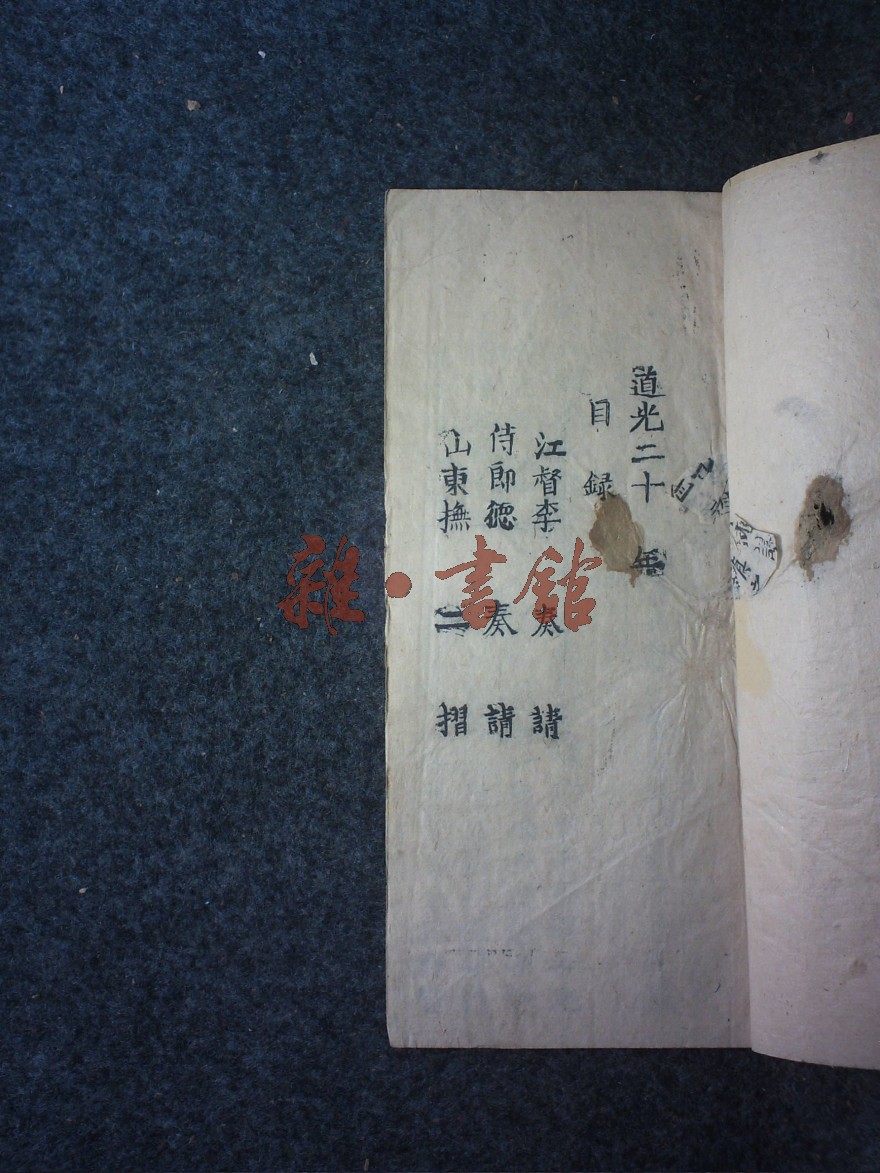 道光二十 年
目 録
江督李 奏 請
侍郎德 奏 請
山東撫 二 摺
雜·書館